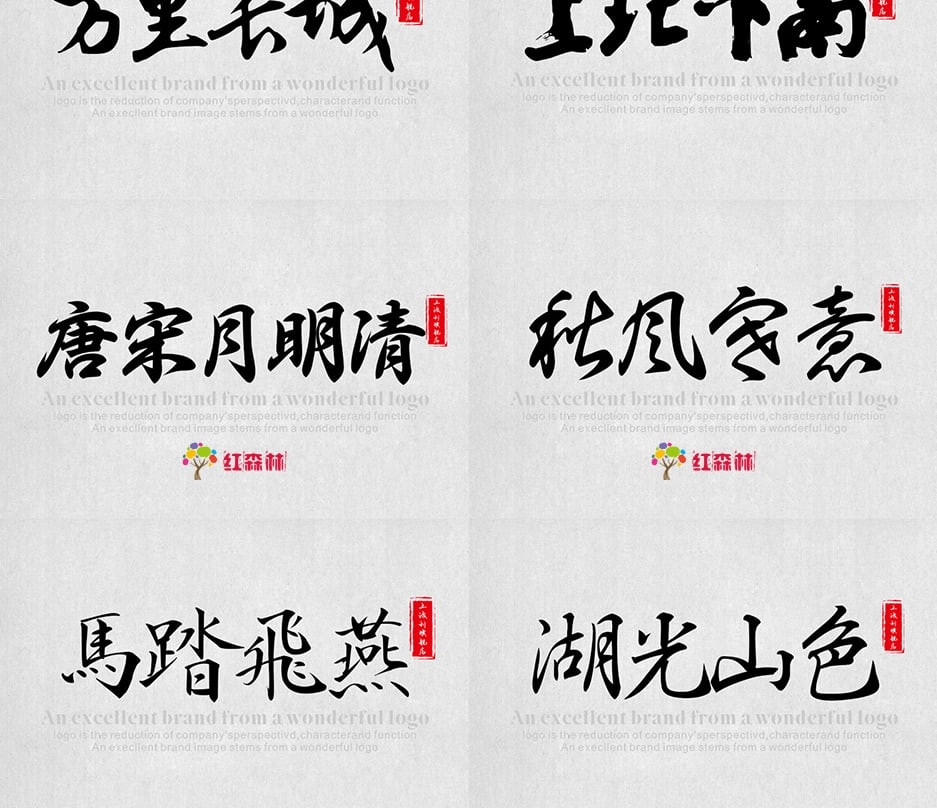 万里长城
An excellent brand from a wonderful logo
logo is the reduction of company'sperspectivd,characterand function
An execllent brand image stems from a wonderful logo
An excellent brand from a wonderful logo
logo is the reduction of company'sperspectivd,characterand function
An execllent brand image stems from a wonderful logo
唐宋月明清
上波利旗舰店
An excellent brand from a wonderful logo
logo is the reduction of company'sperspectivd,characterand function
An execllent brand image stems from a wonderful logo
红森林
秋风写意
上波利旗舰店
An excellent brand from a wonderful logo
logo is the reduction of company'sperspectivd,characterand function
An execllent brand image stems from a wonderful logo
红森林
馬踏飛燕
上波利旗舰店
An excellent brand from a wonderful logo
logo is the reduction of company'sperspectivd,characterand function
An execllent brand image stems from a wonderful logo
湖光山色
上波利旗舰店
An excellent brand from a wonderful logo
logo is the reduction of company'sperspectivd,characterand function
An execllent brand image stems from a wonderful logo